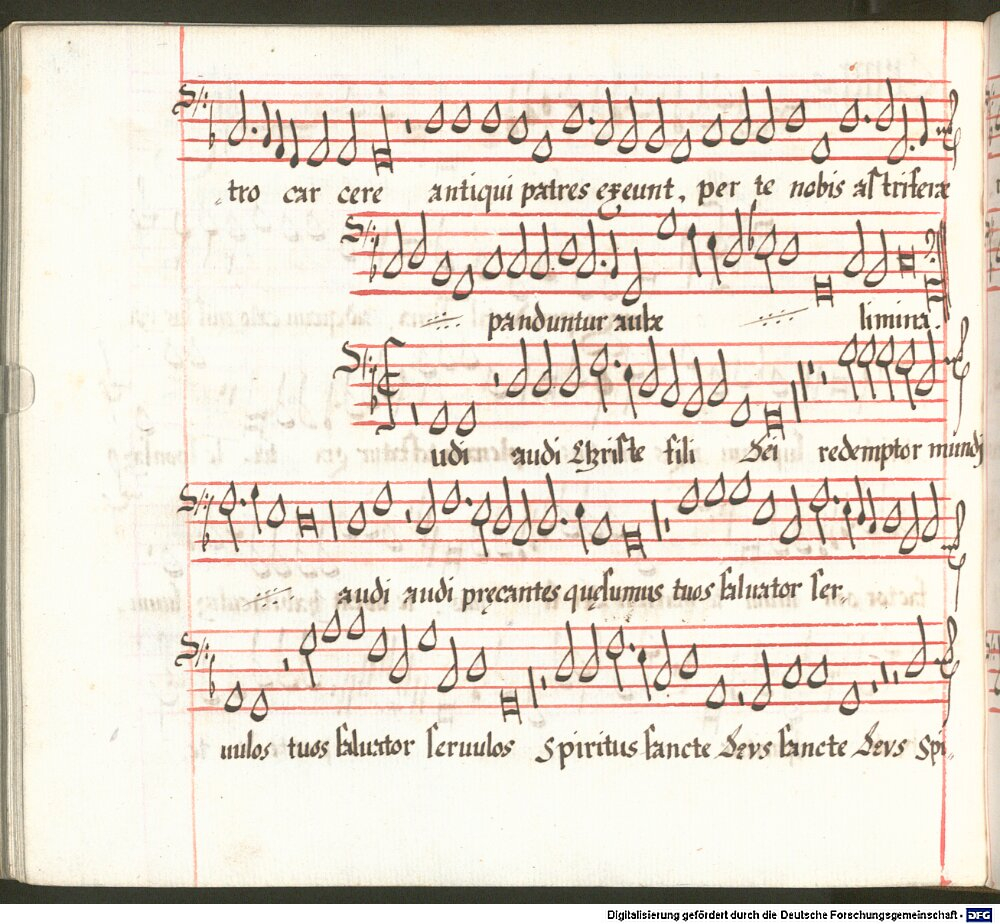 tro car cere antiqui patres exeunt, per te nobis astriferæ
panduntur aulæ limina.
udi audi Christe fili Dei redemptor mundj
audi audi precantes quesumus tuos saluator ser.
uulos tuos saluator seruulos Spiritus sancte Deus sancte Deus Spi,,
Digitalisierung gefördert durch die Deutsche Forschungsgemeinschaft - DFG